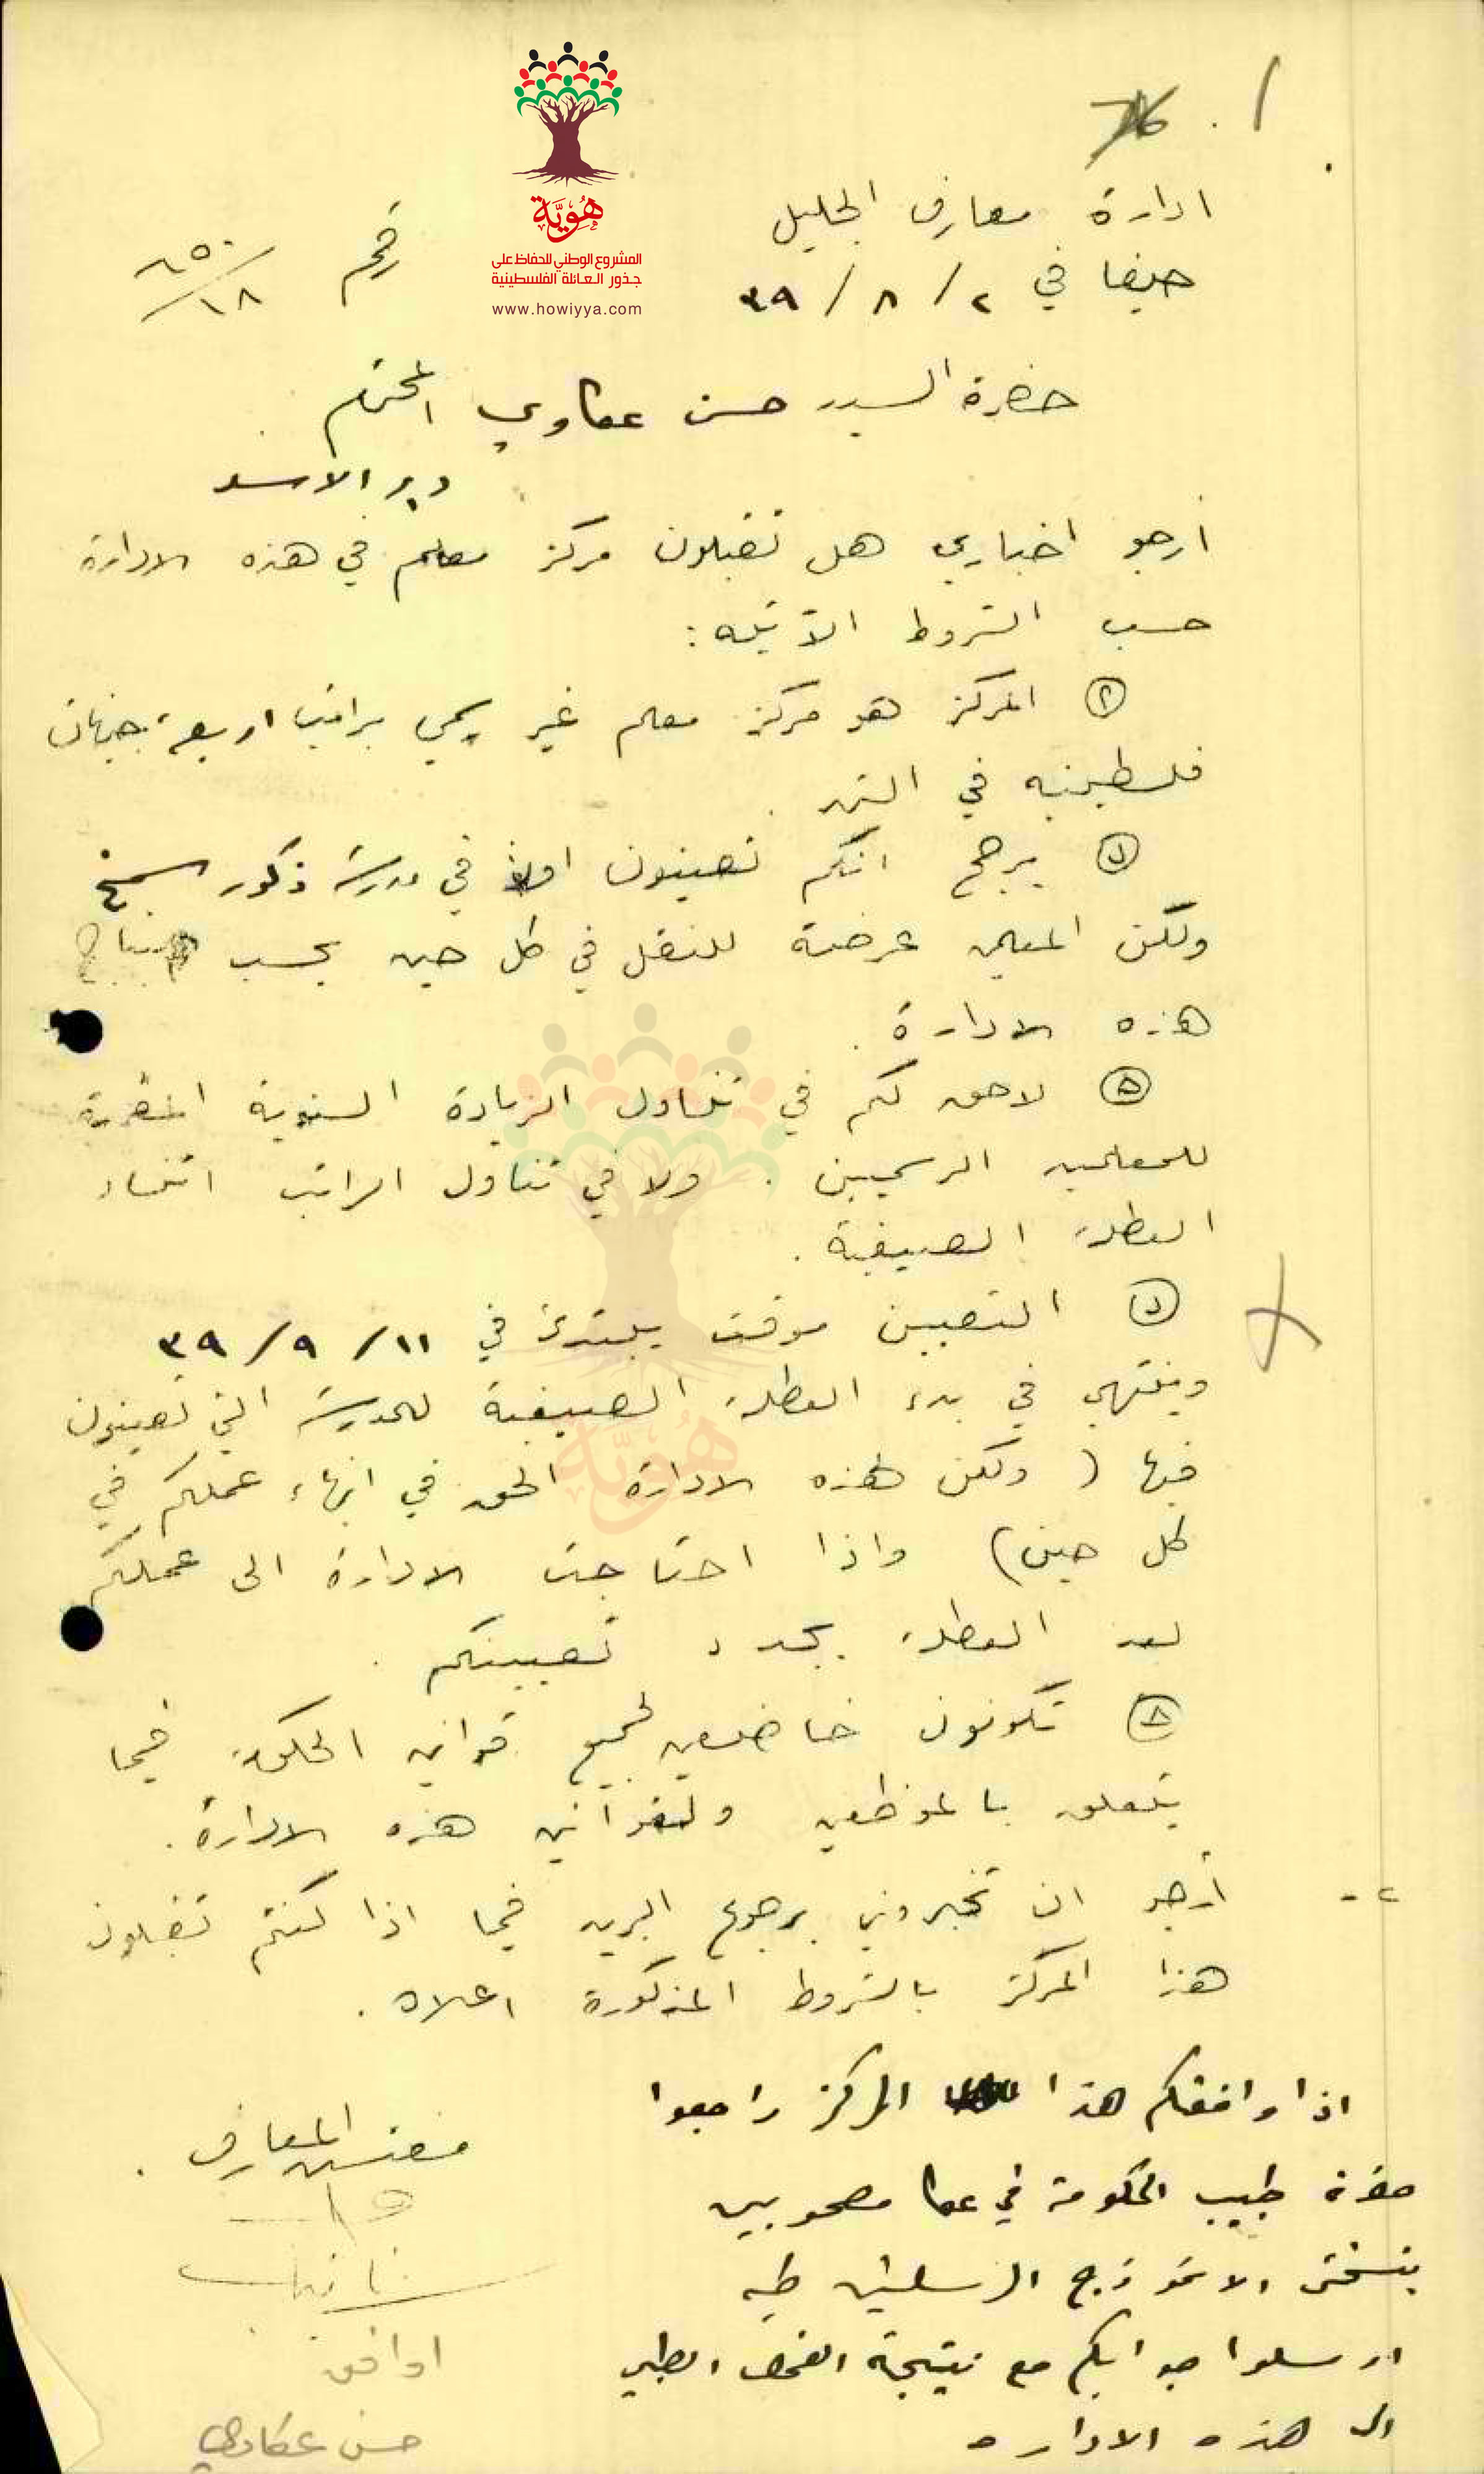 76
هُويَّة
المشروع الوطني للحفاظ على
جذور العائلة الفلسطينية
www.howiyya.com
ادارة معارف الجليل
حيفا في ٢ / ٨ / ٣٩
رقم ٨٥٠/١٨
حضرة السيد حسن عكاوي المحترم
دير الاسد
أرجو اخباري هل تقبلون مركز معلم في هذه الادارة
حسب الشروط الآتيه :
المركز هو مركز معلم غير رسمي براتب اربعة جنيهات
فلسطينيه في الشهر .
ب يرجح انكم تعينون اولا في مدرسة ذكور سمخ
ولكن المعلمين عرضة للنقل في كل حين بحسب
هذه الادارة .
لا حق لكم في تناول الزيادة السنوية المقررة
للمعلمين الرسميين . ولا في تناول الراتب اثناء
العطلة الصيفية .
د التعيين موقت يبتدئ في ١١ / ٩ / ٣٩
وينتهي في بدء العطلة الصيفية للمدرسة التي تعينون
فيها ( ولكن لهذه الادارة الحق في انهاء عملكم في
كل حين ) واذا احتاجت الادارة الى عملكم
بعد العطلة يجدد تعيينكم .
ه تكونون خاضعين لجميع قوانين الحكومة فيما
يتعلق بالموظفين ولقوانين هذه الادارة .
٢ - أرجو ان تخبروني برجوع البريد فيما اذا كنتم تقبلون
هذا المركز بالشروط المذكورة اعلاه .
اذا وافقكم هذا المركز راجعوا
حضرة طبيب الحكومة في عكا مصحوبين
بنسختي الانموذج المرسلتين طيه
ارسلوا جوابكم مع نتيجة الفحص الطبي
الى هذه الاداره
مفتش المعارف .
اوافق
حسن عكاوي
هُويَّة